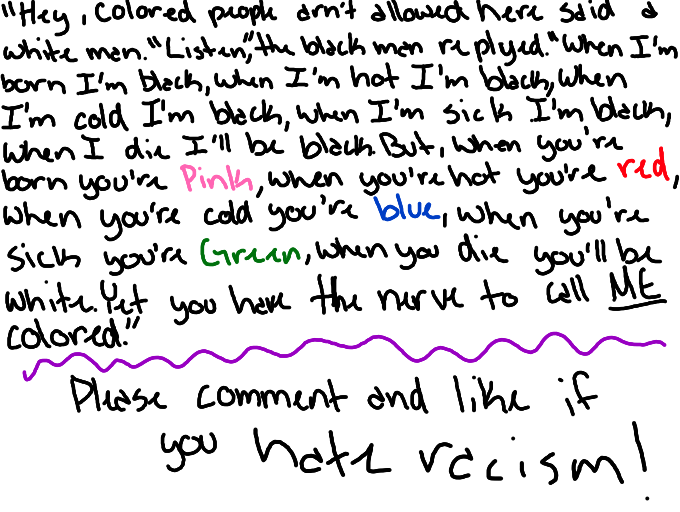 "Hey, colored people arn't allowed here said a
white man. "Listen," the black man replyed. "When I'm
born I'm black, when I'm hot I'm black, when
I'm cold I'm black, when I'm sick I'm black,
when I die I'll be black. But, when you're
born you're Pink, when you're hot you're red,
when you're cold you're blue, when you're
sick you're Green, when you die you'll be
white. Yet you have the nerve to call ME
colored."
Please comment and like if
you hate racism!